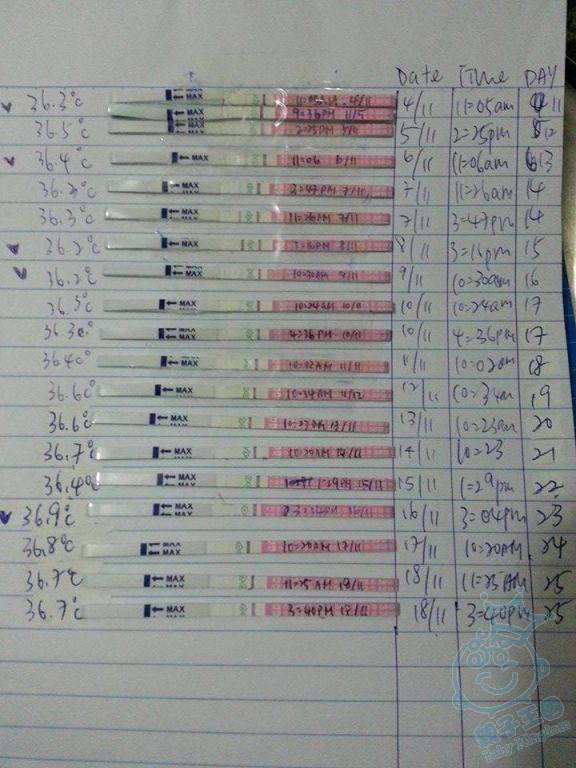 Date Time DAY
36.3°c MAX 11:05AM 4/11 4/11 11=05am 11
MAX 9:36PM 11/5
36.5°c MAX 2:25PM 5/11 5/11 2=25pm 12
36.4°c MAX 11:06 6/11 6/11 11=06am 13
MAX 7/11 7/11 11=26am 14
36.3°c MAX 11:26AM 7/11 7/11 3=47pm 14
36.2°c MAX 8/11 8/11 15
36.2°c MAX 10:30AM 9/11 9/11 10=30am 16
36.3°c MAX 10:24AM 10/11 10=24am 17
36.3c° MAX 4:36PM 10/11 10/11 4=36pm 17
364c° MAX 10:02AM 11/11 11/11 10=02am 18
36.6c° MAX 10:34AM 11/12 12/11 10=34am 19
36.6° MAX 13/11 13/11 10=23am 20
36.7°c MAX 14/11 14/11 10=23 21
36.4 MAX 1:29PM 15/11 15/11 1=29pm 22
36.9°c MAX 16/11 16/11 3=04pm 23
36.8°c MAX 10:20AM 17/11 17/11 10=20AM 24
36.7°c MAX 11:25AM 18/11 18/11 11=25AM 25
36.7°c MAX 3:40PM 18/11 18/11 3=40pm 25
親子王國
Baby Kingdom